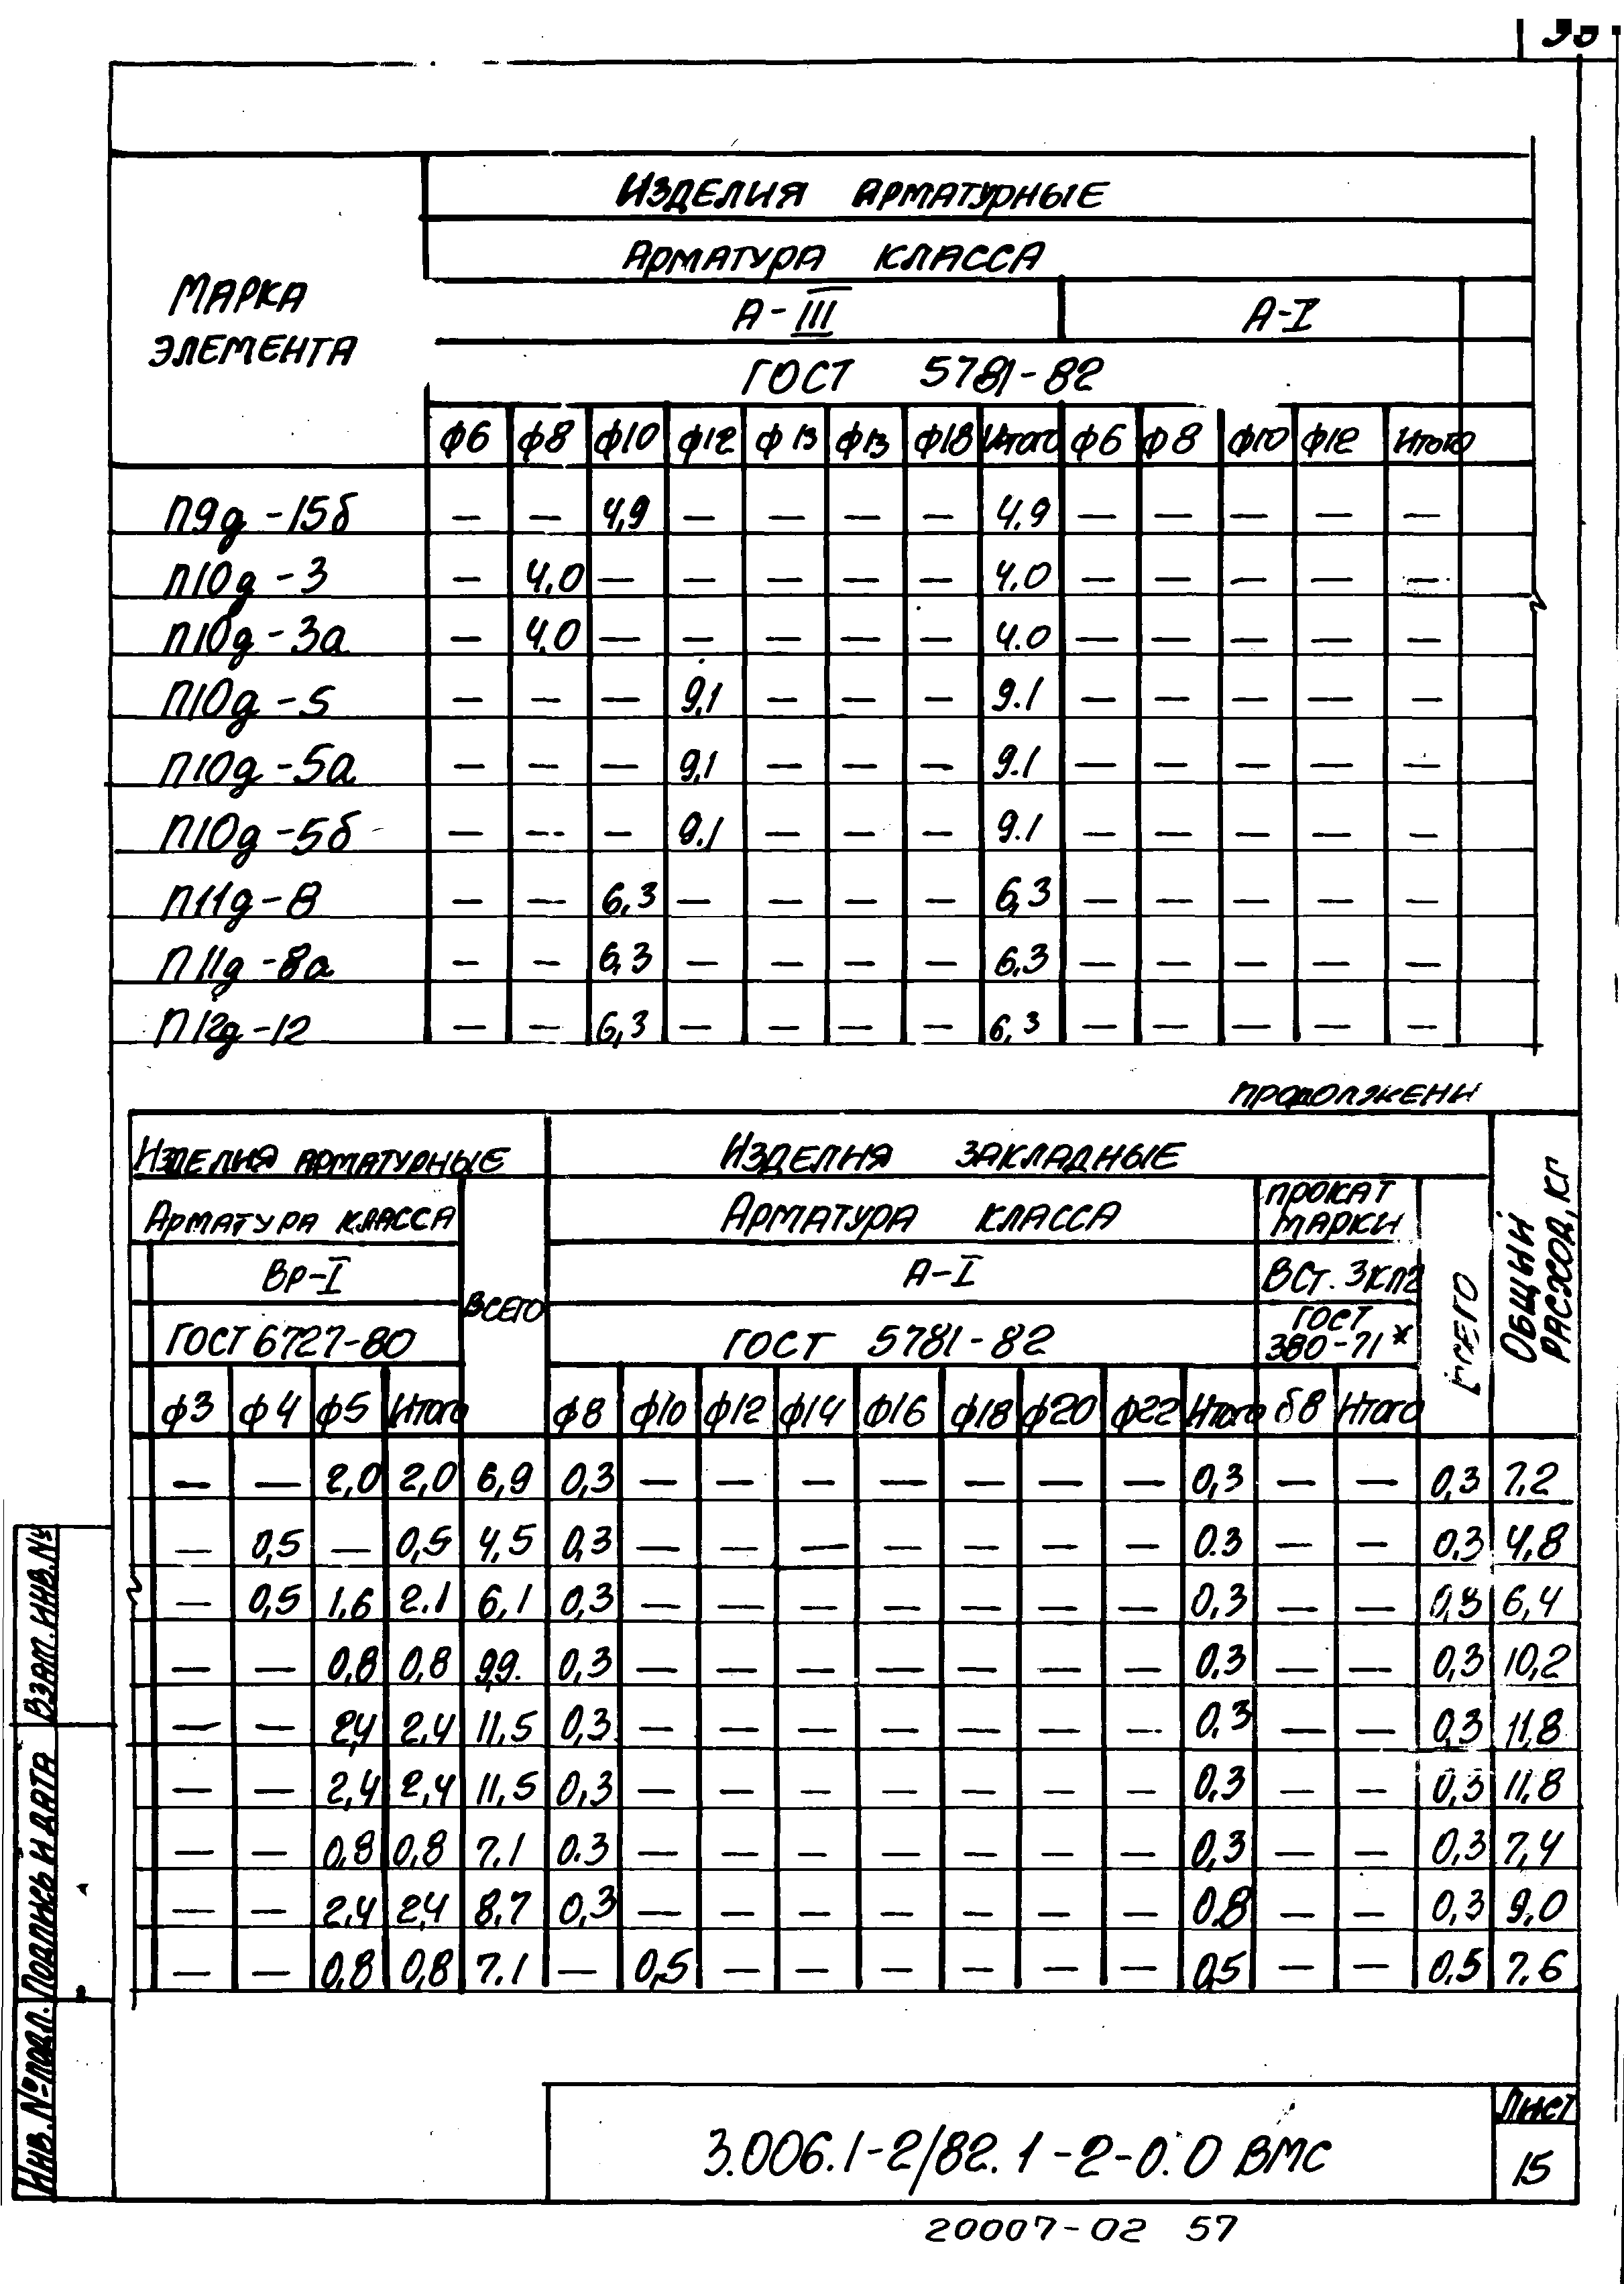 ИЗДЕЛИЯ АРМАТУРНЫЕ
АРМАТУРА КЛАССА
МАРКА ЭЛЕМЕНТА
А-III А-I
ГОСТ 5781-82
ф6 ф8 ф10 ф12 ф13 ф13 ф18 Итого ф6 ф8 ф10 ф12 Итого
П9д-15б — — 4,9 — — — — 4.9 — — — — —
П10д-3 — 4.0 — — — — — 4.0 — — — — —
П10д-3а — 4.0 — — — — — 4.0 — — — — —
П10д-5 — — — 9,1 — — — 9.1 — — — — —
П10д-5а — — — 9,1 — — — 9.1 — — — — —
П10д-5б — — — 9.1 — — — 9.1 — — — — —
П11д-8 — — 6,3 — — — — 6,3 — — — — —
П11д-8а — — 6,3 — — — — 6.3 — — — — —
П12д-12 — — 6,3 — — — — 6,3 — — — — —
ПРОДОЛЖЕНИ
ИЗДЕЛИЯ АРМАТУРНЫЕ ИЗДЕЛИЯ ЗАКЛАДНЫЕ ОБЩИЙ РАСХОД, КГ
АРМАТУРА КЛАССА ВСЕГО АРМАТУРА КЛАССА ПРОКАТ МАРКИ ВСЕГО
Вр-I А-I ВСт.3кп2
ГОСТ 6727-80 ГОСТ 5781-82 ГОСТ 380-71*
ф3 ф4 ф5 Итого ф8 ф10 ф12 ф14 ф16 ф18 ф20 ф22 Итого δ8 Итого
— — 2,0 2,0 6,9 0,3 — — — — — — — 0,3 — — 0,3 7.2
— 0,5 — 0,5 4,5 0,3 — — — — — — — 0.3 — — 0.3 4,8
— 0,5 1,6 2.1 6,1 0,3 — — — — — — — 0,3 — — 0,3 6,4
— — 0,8 0,8 9,9. 0,3 — — — — — — — 0,3 — — 0,3 10,2
— — 2,4 2,4 11,5 0,3 — — — — — — — 0,3 — — 0,3 11,8
— — 2,4 2,4 11,5 0,3 — — — — — — — 0,3 — — 0,3 11,8
— — 0,8 0,8 7.1 0.3 — — — — — — — 0,3 — — 0,3 7,4
— — 2,4 2,4 8,7 0,3 — — — — — — — 0,8 — — 0,3 9,0
— — 0,8 0,8 7.1 — 0,5 — — — — — — 0,5 — — 0,5 7.6
ИНВ. № ПОДЛ. ПОДПИСЬ И ДАТА ВЗАМ. ИНВ. №
3.006.1-2/82.1-2-0.0 ВМС
ЛИСТ
15
20007-02 57